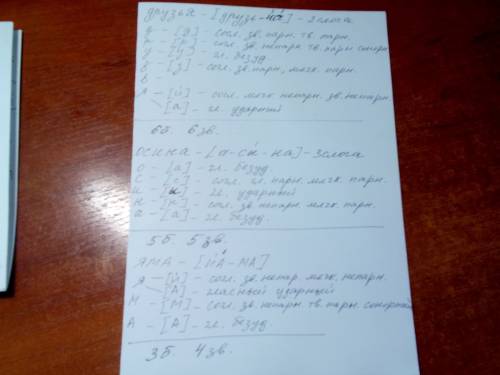 друзья - [друзь-йа] - 2 слога
д - [д] - согл. зв. парн. тв. парн.
р - [р] - согл. зв. непарн. тв. парн. сонорн.
у - [у] - гл. безуд.
з - [з] - согл. зв. парн, мягк. парн.
ь
я - [й] - согл. мягк. непарн. зв. непарн.
[а] - гл. ударный
6 б. 6 зв.
осина - [а-си-на] - 3 слога
о - [а] - гл. безуд.
с - [с] - согл. гл. парн. мягк. парн.
и - [и] - гл. ударный
н - [н] - согл. зв. непарн. мягк. парн.
а - [а] - гл. безуд.
5 б. 5 зв.
ЯМА - [ЙА-МА]
Я - [й] - согл. зв. непар. мягк. непарн.
[А] - гласный ударный
М - [М] - согл. зв. непарн. тв. парн. сонорный
А - [А] - гл. безуд.
3 б. 4 зв.